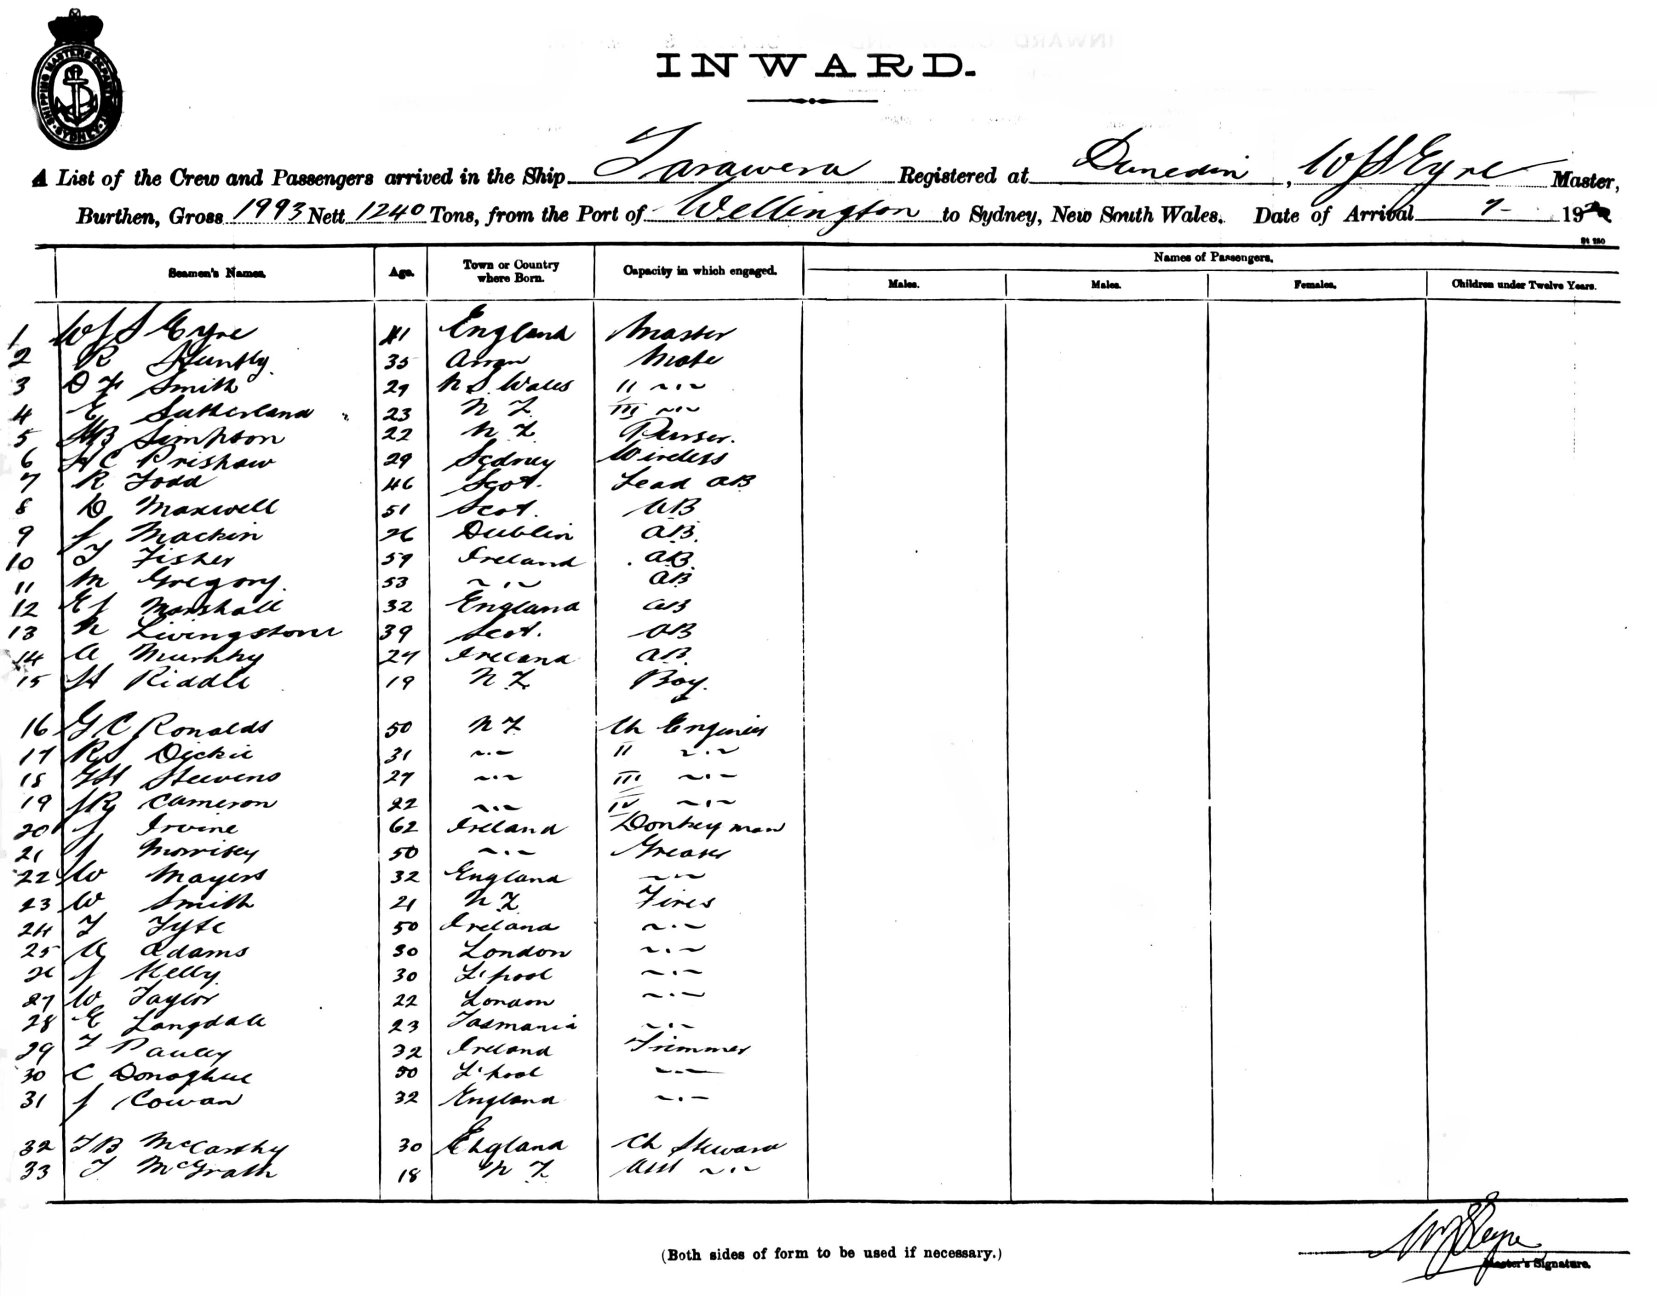 SHIPPING MASTERS DEPARTMENT SYDNEY
INWARD.
A List of the Crew and Passengers arrived in the Ship Tarawera Registered at Dunedin, WJS Eyre Master,
Burthen, Gross 1993 Nett 1240 Tons, from the Port of Wellington to Sydney, New South Wales. Date of Arrival 7- 19
Names of Passengers.
Seamen's Names. Age. Town or Country where Born. Capacity in which engaged. Males. Males. Females. Children under Twelve Years.
1 WJS Eyre 41 England Master
2 R Huntly. 35 Arran Mate
3 D F Smith 29 N S Wales II ~.~
4 E Sutherland 23 N Z III ~.~
5 Simpson 22 N.Z. Purser.
6 H C Prishaw 29 Sydney Wireless
7 R Todd 46 Scot. Lead AB
8 D Maxwell 51 Scot. AB
9 J Mackin 26 Dublin AB.
10 T Fisher 59 Ireland AB.
11 M Gregory. 53 ~.~ AB
12 E J Marshall 32 England AB
13 N Livingstone 39 Scot. AB
14 A Murphy 27 Ireland AB.
15 H Riddle 19 N Z Boy.
16 G C Ronalds 50 N Z Ch Engineer
17 R S Dickie 31 ~.~ II ~.~
18 G H Steevens 27 ~.~ III ~.~
19 J R Cameron 22 ~.~ IV ~.~
20 J Irvine 62 Ireland Donkeyman
21 J Morrisey 50 ~.~ Greaser
22 W Mayers 32 England ~.~
23 W Smith 21 N Z Fires
24 T Fyfe 50 Ireland ~.~
25 A Adams 30 London ~.~
26 J Kelly. 30 L'pool ~.~
27 W Taylor 22 London ~.~
28 E Langdale 23 Tasmania ~.~
29 T Pauley 32 Ireland Trimmer
30 C Donoghue 50 L'pool ~.~
31 J Cowan 32 England ~.~
32 T B McCarthy 30 England Ch Steward
33 T McGrath 18 N Z Asst ~.~
(Both sides of form to be used if necessary.)
WJS Eyre
Master's Signature.